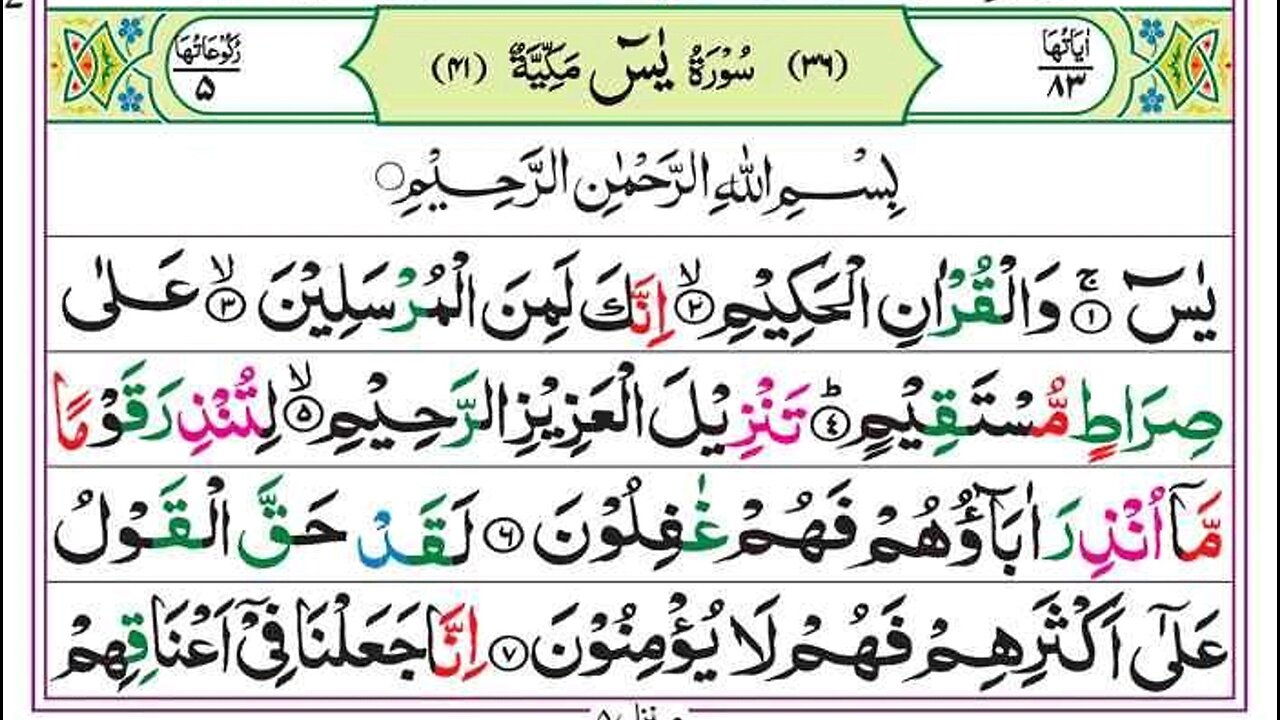 اٰيَاتُهَا ٨٣ (٣٦) سُوْرَةُ يٰسٓ مَكِّيَّةٌ (٤١) رُكُوْعَاتُهَا ٥
بِسْمِ اللّٰهِ الرَّحْمٰنِ الرَّحِيْمِ
يٰسٓ ۚ ١ وَالْقُرْاٰنِ الْحَكِيْمِ ۙ ٢ اِنَّكَ لَمِنَ الْمُرْسَلِيْنَ ۙ ٣ عَلٰى
صِرَاطٍ مُّسْتَقِيْمٍ ؕ ٤ تَنْزِيْلَ الْعَزِيْزِ الرَّحِيْمِ ۙ ٥ لِتُنْذِرَ قَوْمًا
مَّاۤ اُنْذِرَ اٰبَآؤُهُمْ فَهُمْ غٰفِلُوْنَ ٦ لَقَدْ حَقَّ الْقَوْلُ
عَلٰۤى اَكْثَرِهِمْ فَهُمْ لَا يُؤْمِنُوْنَ ٧ اِنَّا جَعَلْنَا فِيْۤ اَعْنَاقِهِمْ
منزل ٥